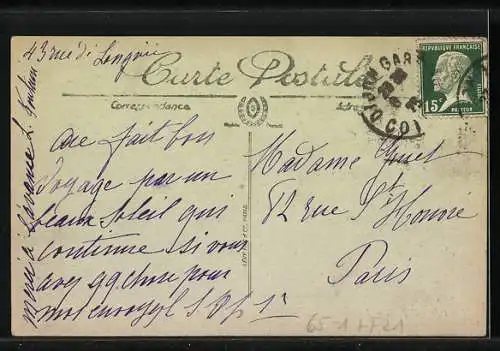 43 rue de Longvic
Carte Postale
Correspondance
Adresse
DIJON GARE
REPUBLIQUE FRANÇAISE
15c
PASTEUR
ai fait bon
voyage par un
beau soleil qui
continue si vous
avez qq chose pour
moi envoyez S V P
merci à l'avance
Madame
82 rue St Honoré
Paris